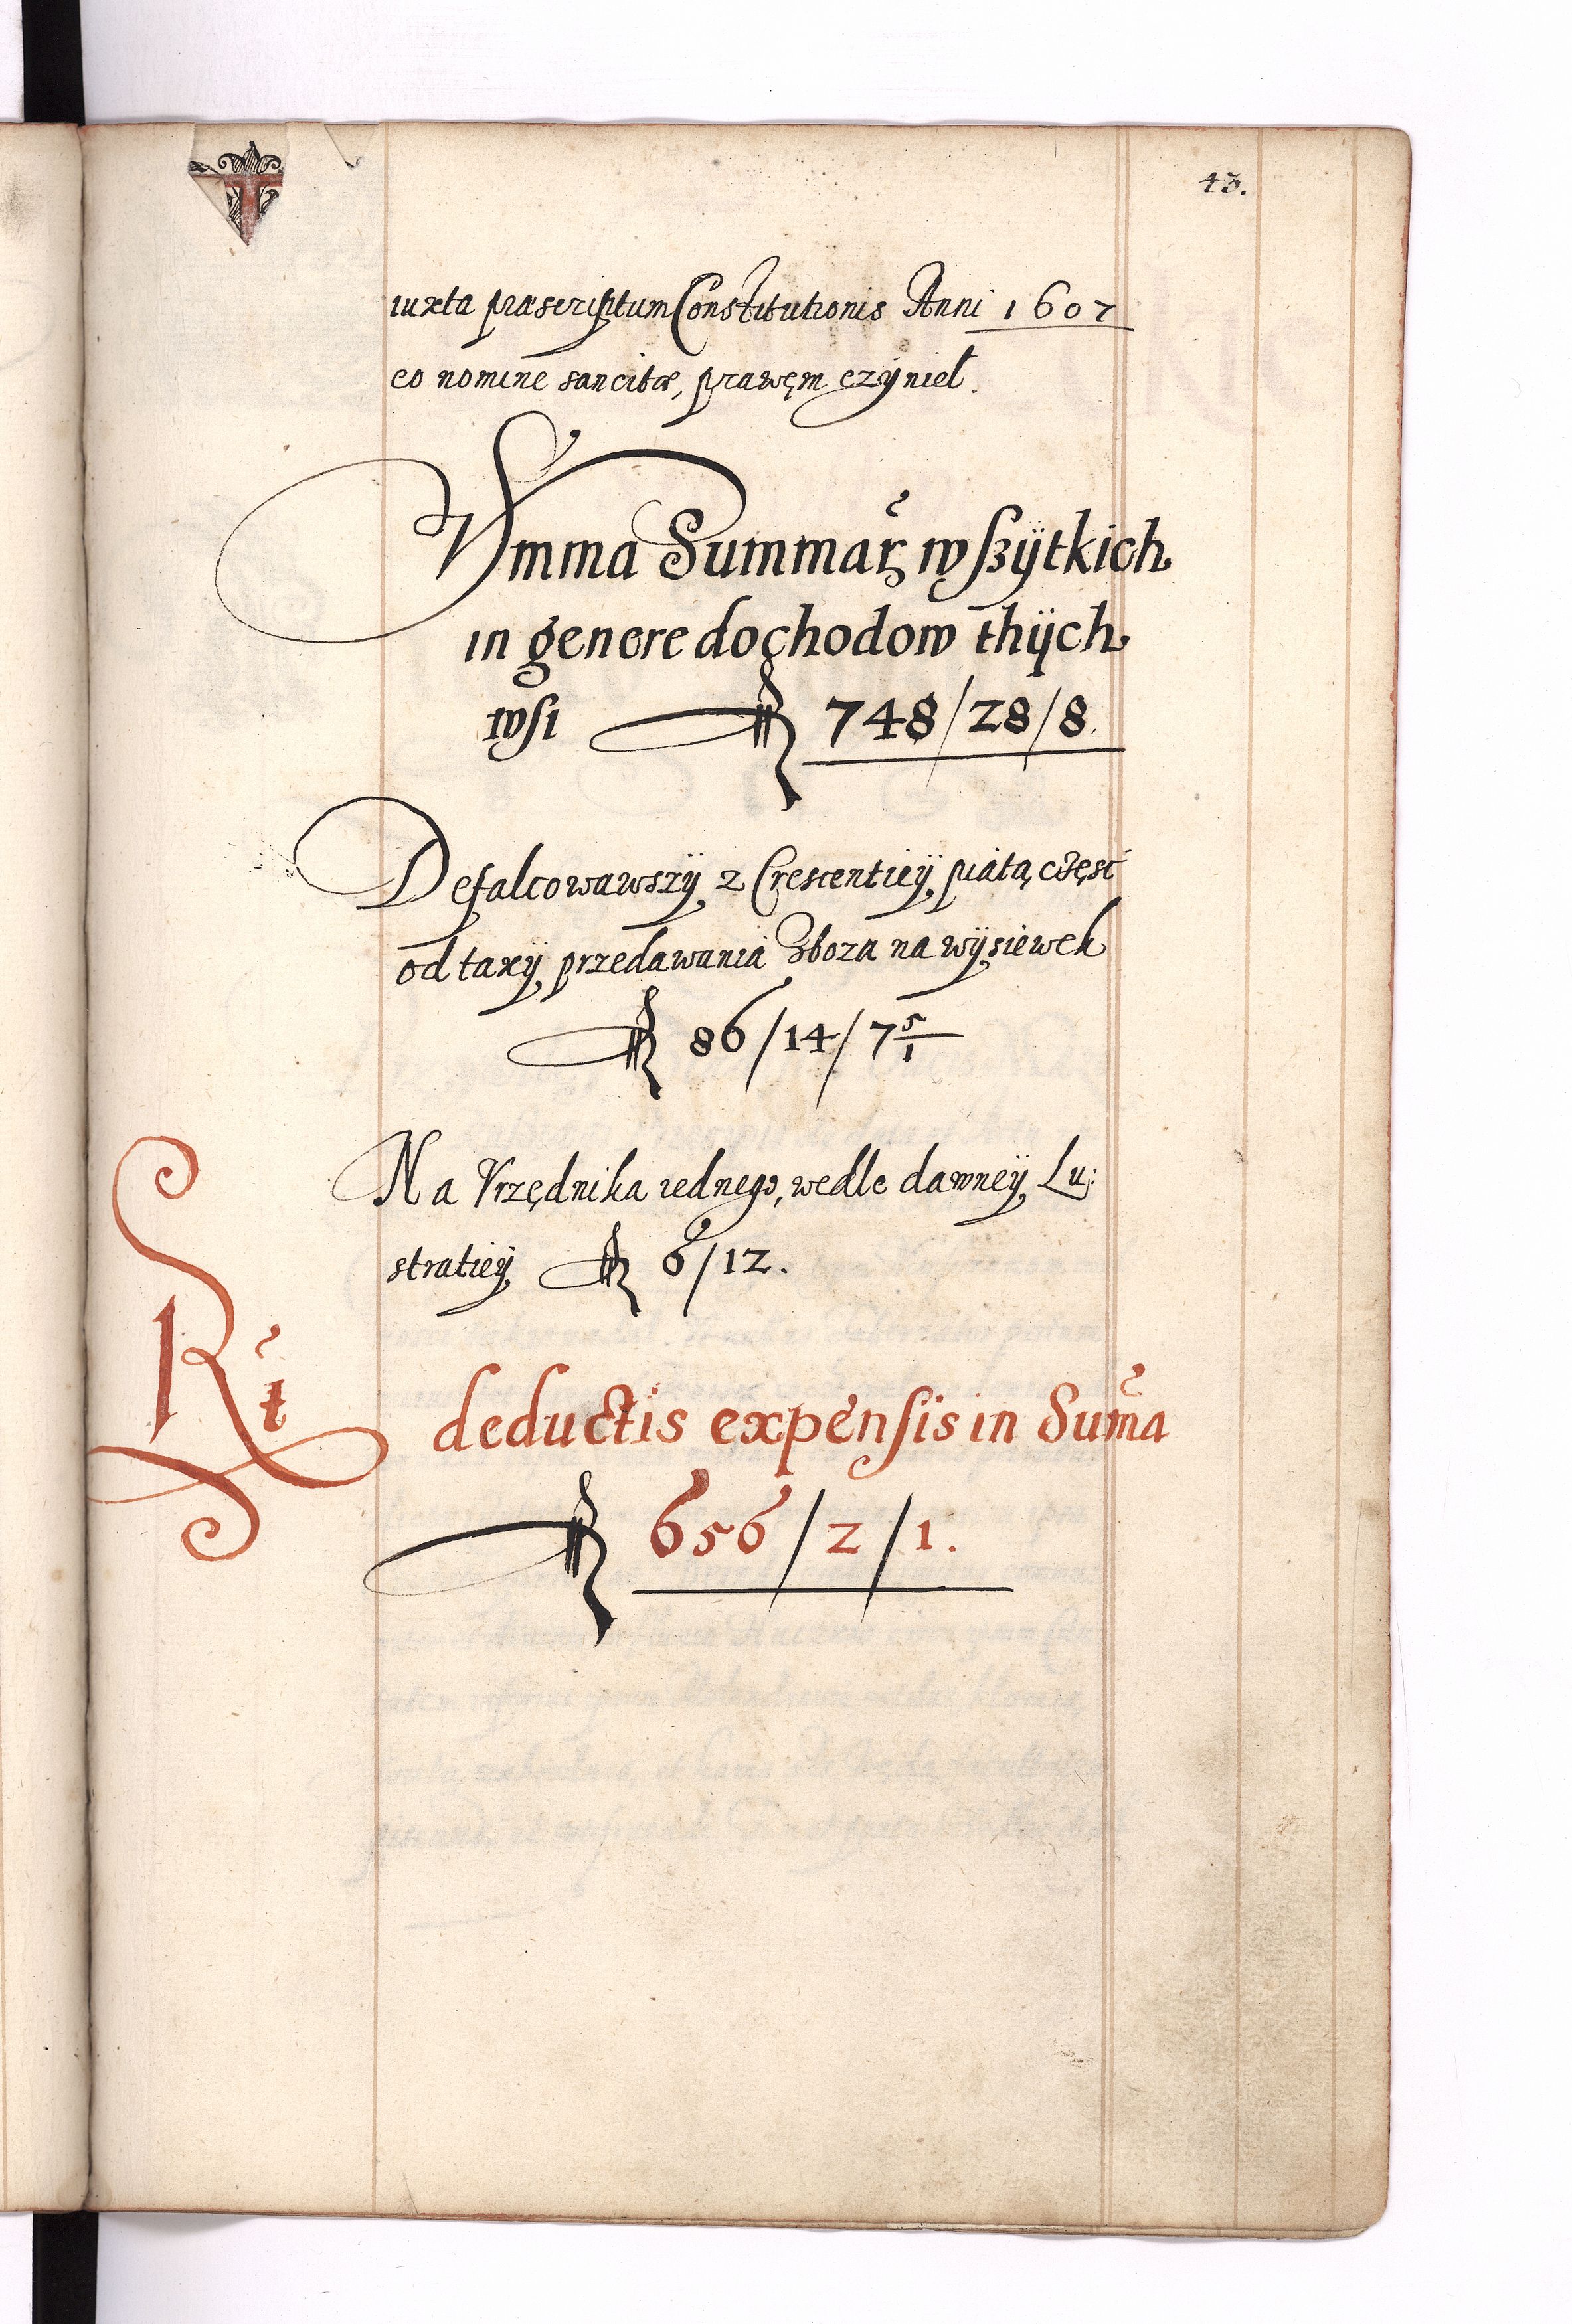 43.
iuxta præscriptum Constitutionis Anni 1607
eo nomine sancitæ, prawęm czÿnieł.
Summa Summar̃ wszÿtkich
in genere dochodow thÿch
wsi fl 748/28/8.
Defalcowawszÿ z Crescentieÿ piątą część
od taxÿ przedawania Zboza na wÿsiewek
fl 86/14/7 5/1
Na Vrzędnika iednego, wedle dawneÿ Lu:
stratieÿ fl 6/12.
Rt̃ deductis expensis in Sum̃a
fl 656/2/1.